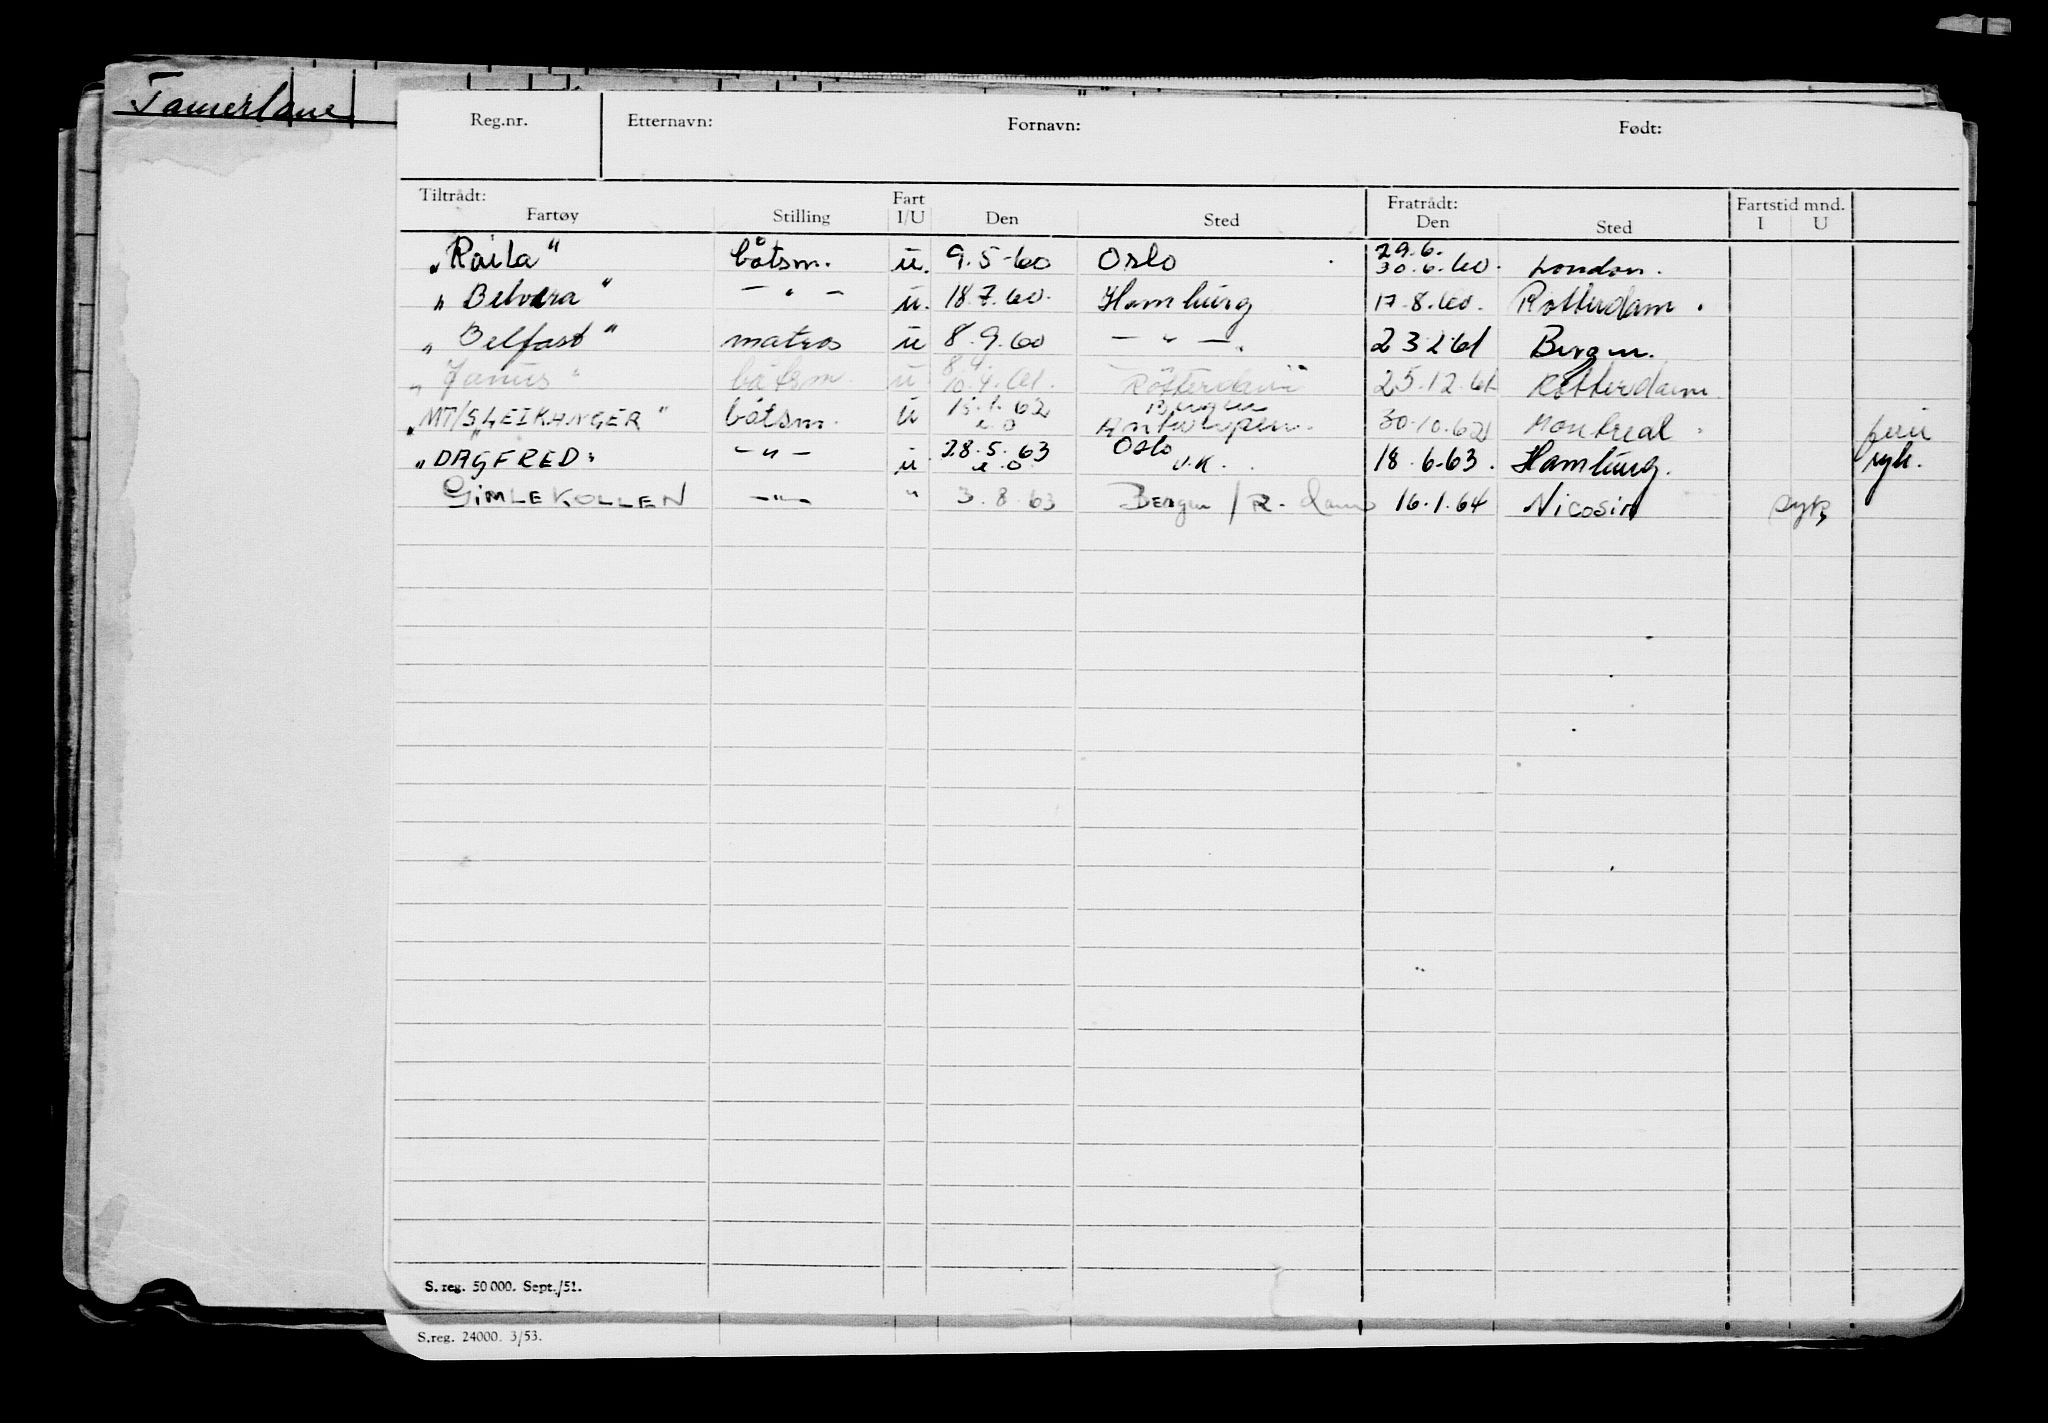 Tamerlane
Reg.nr. Etternavn: Fornavn: Født:
Tiltrådt: Fart Fratrådt: Fartstid mnd.
Fartøy Stilling I/U Den Sted Den Sted I U
29.6.
„Raila" båtsm. u. 9.5-60 Oslo 30.6.60. London.
„Belvera" — " — u. 18.7.60. Hamburg 17.8.60. Rotterdam.
„Belfast" matros u 8.9.60 — " — . 23 2 61 Bergen.
„Janus" båtsm. u 10.4.61. Rotterdam 25.12.61 Rotterdam.
15.1.62 Bergen
„MT/SLEIKANGER" båtsm. u e o Antwerpen. 30.10.62 Montreal. ferie
28.5.63 Oslo
„DAGFRED" — " — u e o U.K. 18.6.63. Hamburg. syk.
GIMLEKOLLEN — " — " 3.8.63 Bergen / R.dam 16.1.64 Nicosia syk
S. reg. 50 000. Sept./51.
S.reg. 24000. 3/53.